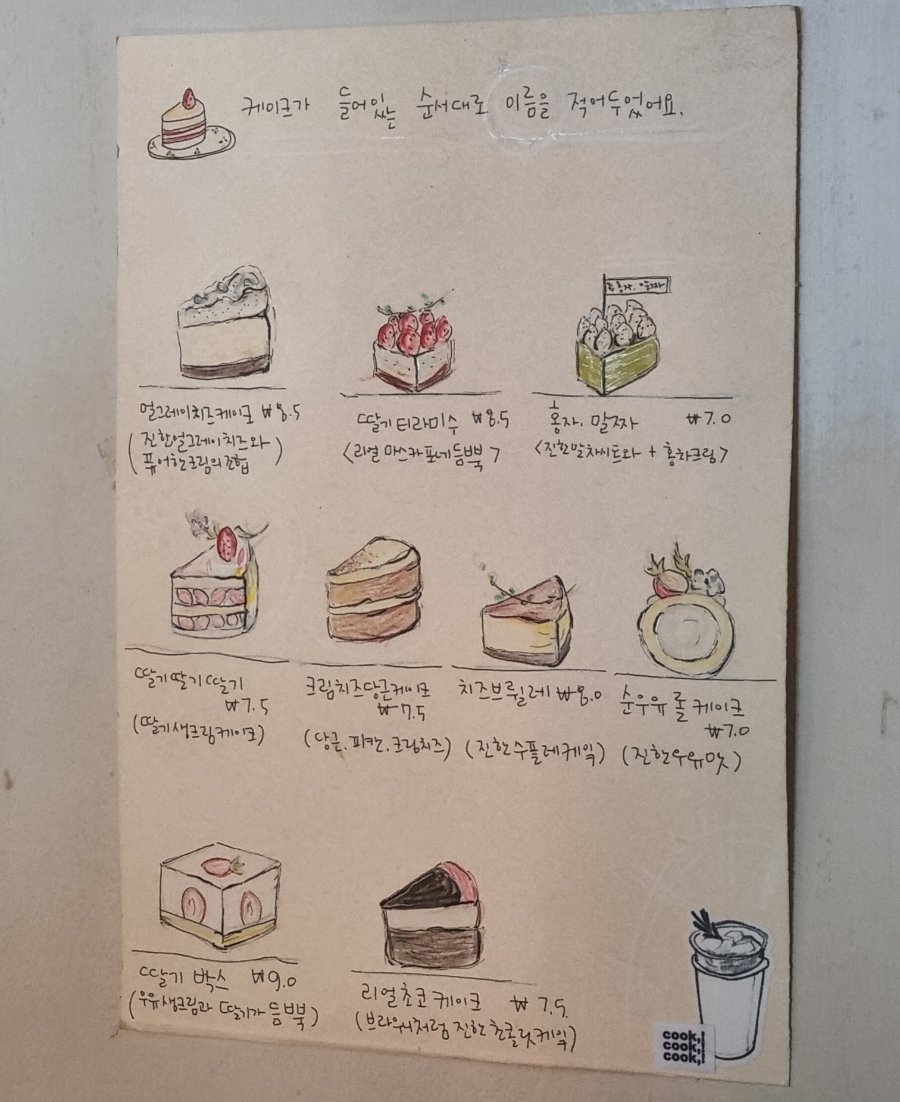 케이크가 들어있는 순서대로 이름을 적어두었어요.
얼그레이치즈케이크 ₩8.5
(진한얼그레이치즈와
퓨어한크림의조합)
딸기티라미수 ₩8.5
<리얼 마스카포네듬뿍>
홍자. 말짜 ₩7.0
<진한말차시트와 + 홍차크림>
딸기딸기딸기
₩7.5
(딸기생크림케이크)
크림치즈당근케이크
₩7.5
(당근.피칸.크림치즈)
치즈브륄레 ₩8.0
(진한수플레케잌)
순우유롤케이크
₩7.0
(진한우유맛)
딸기 박스 ₩9.0
(우유생크림과 딸기가 듬뿍)
리얼초코케이크 ₩7.5
(브라우니처럼 진한 초콜릿케잌)
cook,
cook,
cook,